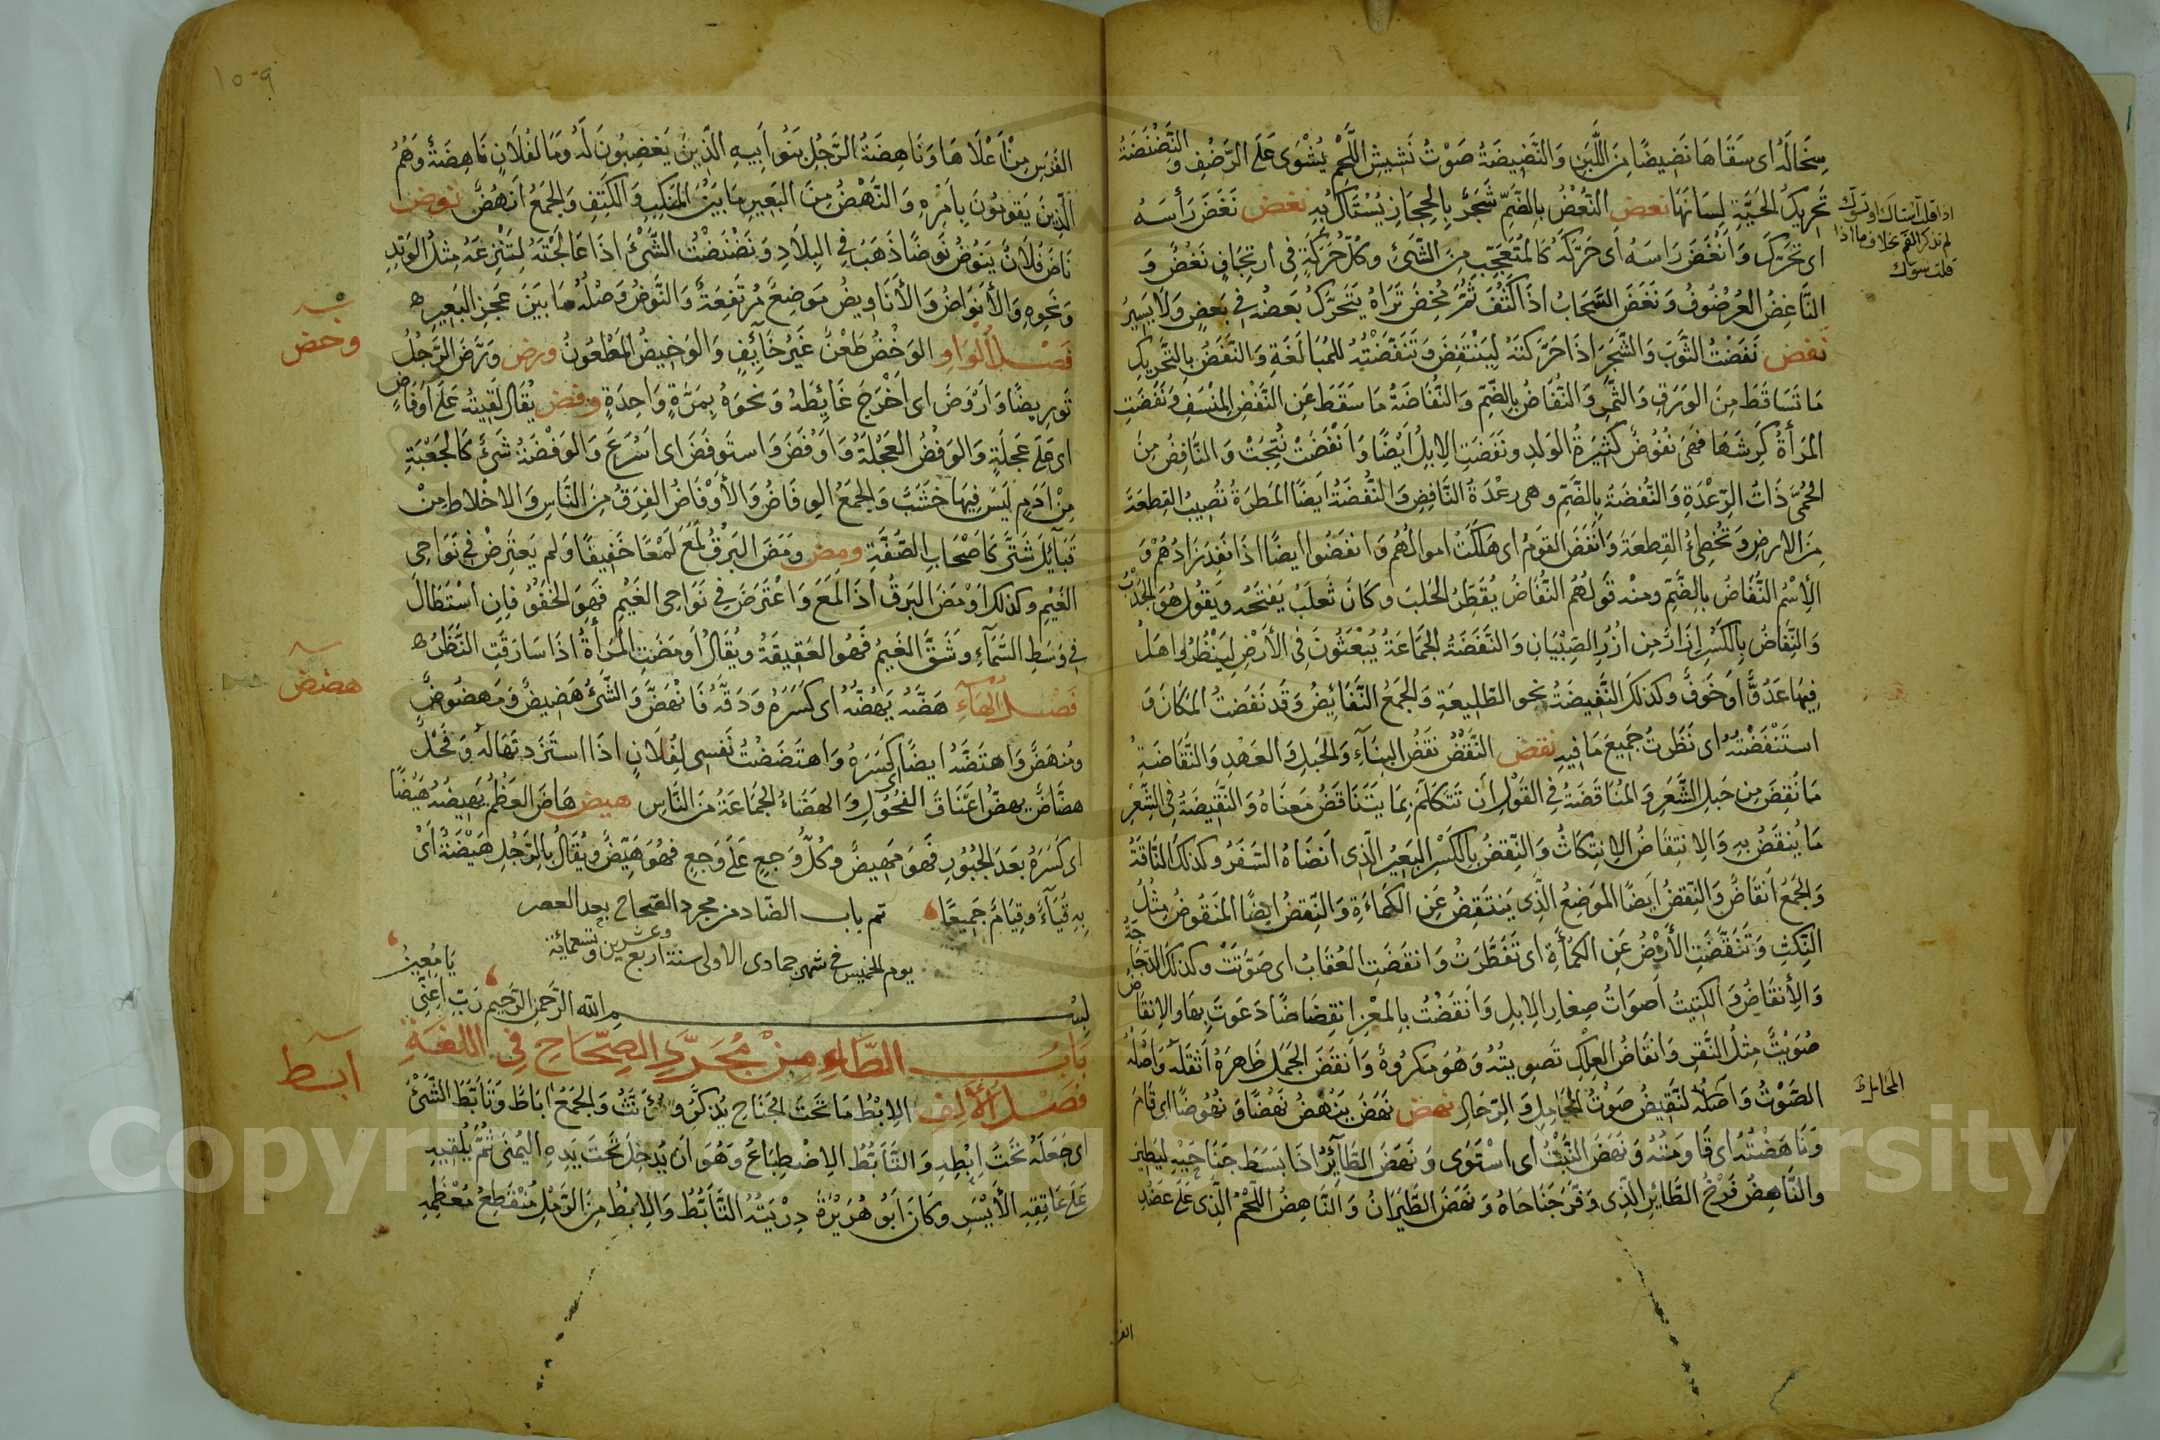 سِخَالَهُ اى سَقَاهَا نَضِيضًا مِنَ اللَّبَنِ وَالنَّضِيضَةُ صَوْتُ نَشِيشِ اللَّحْمِ يُشْوَى عَلَى الرَّضْفِ وَالنَّضْنَضَةُ
تَحْرِيكُ الحَيَّةِ لِسَانَهَا نعض النُّعْضُ بِالضَّمِّ شَجَرٌ بِالحِجَازِ يُسْتَاكُ بِهِ نغض نَغَضَ رَأْسَهُ
اى تَحَرَّكَ وَاَنْغَضَ رَاسَهُ اَى حَرَّكَهُ كَالمُتَعَجِّبِ مِنَ الشَّئِ وكُلُّ حَرَكَةٍ فِى ارْتِجَافٍ نَغْضٌ وَ
النَّاغِضُ الغُرْضُوفُ وَنَغَضَ السَّحَابُ اذَا كَثُفَ ثُمَّ مُخِضَ تَرَاهُ يَتَحَرَّكُ بَعضُه فِى بَعضٍ وَلَا يَسِيرُ
نفض نَفَضْتُ الثَّوبَ وَالشَّجَرَ اذَا حَرَّكتَهُ لِيَنْتَفِضَ وَنَفَّضْتُهُ لِلمُبَالَغَةِ وَالنَّفَضُ بِالتَّحْرِيكِ
مَا تَسَاقَطَ مِنَ الوَرَقِ وَالثَّمَرِ وَالنُّفَاضُ بِالضَّمِّ وَالنُّفَاضَةُ مَا سَقَطَ عَنِ النَّفْضِ وَنَفَضَتِ
المَرأَةُ كَرِشَهَا فهِىَ نَفُوضٌ كَثِيرَةُ الوَلَدِ ونَفَضَتِ الاِبِلُ اَيْضًا وَاَنْفَضَتْ نُتِجَتْ وَالنَّافِضُ مِنَ
الحُمَّى ذَاتُ الرِّعْدَةِ وَالنُّفْضَةُ بِالضَّمِّ وهى رِعْدَةُ النَّافِضِ وَالنُّفْضَةُ ايضًا المَطَرَةُ تُصِيبُ القِطعَةَ
مِنَ الارضِ وَتُخْطِئُ القِطعَةَ وَاَنْفَضَ القَومُ اى هَلَكَتْ اموالُهُم وَانفَضُوا ايضًا اذَا نَفِدَ زَادُهُمْ وَ
الاِسْمُ النُّفَاضُ بالضَّمِّ ومنه قَولُهُم النُّفَاضُ يُقَطِّرُ الجَلَبَ وكَانَ ثَعلَبُ يَفتَحُه ويقولُ هُوَ الجَدْبُ
وَالنِّفَاضُ بِالكَسْرِ اِزَارٌ مِن اُزُرِ الصِّبْيَانِ وَالنَّفَضَةُ الجَمَاعَةُ يُبْعَثُونَ فِى الأَرْضِ لِيَنْظُرُوا هَل
فِيهَا عَدُوٌّ اَو خَوفٌ وكذلكَ النَّفِيضَةُ نحو الطَّلِيعَةِ وَالجَمعُ النَّفَائِضُ وَقَد نَفَضْتُ المَكَانَ وَ
استَنْفَضْتُهُ اى نَظَرتُ جَمِيعَ مَا فِيهِ نقض النَّقْضُ نَقضُ البِنَآءِ وَالحَبلِ وَالعَهْدِ وَالنُّقَاضَةُ
مَا نُقِضَ مِن حَبلِ الشَّعَرِ وَالمُنَاقَضَةُ فِى القَوْلِ اَن تَتَكَلَّمَ بِمَا يَتَنَاقَضُ مَعنَاهُ وَالنَّقِيضَةُ فِى الشِّعْرِ
مَا يُنقَضُ بِهِ وَالاِنتِقَاضُ الاِنتِكَاثُ وَالنِّقضُ بِالكَسْرِ البَعِيرُ الَّذِى اَنضَاهُ السَّفَرُ وكذلكَ النَّاقَةُ
وَالجَمعُ اَنقَاضٌ وَالنِّقْضُ اَيضًا المَوضِعُ الَّذِى يَنتَقِضُ عَنِ الكَمَاءَةِ وَالنِّقضُ ايضًا المَنقُوضُ مِثلُ
النِّكْثِ وَتَنَقَّضَتِ الأَرْضُ عَنِ الكَمْأَةِ اى تَفَطَّرَتْ وَانقَضَتِ العُقَابُ اى صَوَّتَتْ وكذلكَ الدَّجَاجَةُ
وَالأنقَاضُ وَالكَتِيتُ اَصوَاتُ صِغَارِ الاِبِلِ وَاَنقَضْتُ بِالمَعْزِ اِنقِضَاضًا دَعَوتَ بِهَا وَالاِنقَاضُ
صُوَيْتٌ مِثلُ النَّقْرِ وَاِنقَاضُ العِلْكِ تَصوِيتُهُ وَهُوَ مَكرُوهٌ وَاَنقَضَ الحِملُ ظَهرَهُ اَثقَلَهُ وَاصْلُهُ
الصَّوْتُ وَاصْلُهُ لنَقِيضِ صَوْتِ المَحَامِلِ وَالرِّحَالِ نهض نَهَضَ يَنْهَضُ نَهْضًا وَ نُهُوضًا اى قَامَ
وَنَاهَضْتُهُ اى قَاوَمْتُهُ وَنَهَضَ النَّبْتُ اى اسْتَوَى وَ نَهَضَ الطَّآئِرُ اذَا بَسَطَ جَنَاحَيْهِ لِيَطِيرَ
وَالنَّاهِضُ فَرْخُ الطَّائِرِ الَّذِى وَفَرَ جَنَاحَاهُ وَ نَهَضَ الطَّيَرَانُ وَالنَّاهِضُ اللَّحْمُ الَّذِى عَلَى عَضُدِ
اذا قلت استاك او تسوك
لم تذكر الفم بخلاف ما اذا
قلت سوك
المحامل
الفر
١٥٠٩
الفَرَسِ مِنْ اَعْلَاهَا وَنَاهِضَةُ الرَّجُلِ بَنُوا اَبِيهِ الَّذِينَ يَغضَبُونَ لَهُ وَمَا لِفُلَانٍ نَاهِضَةٌ وَهُمُ
الَّذِينَ يَقُومُونَ بِاَمْرِهِ وَالنَّهْضُ مِنَ البَعِيرِ مَا بَيْنَ المَنكِبِ وَالكَتِفِ وَالجَمْعُ اَنْهُضٌ نوض
نَاضَ فُلَانٌ يَنُوضُ نَوضًا ذَهَبَ فِى البِلَادِ وَنَضْنَضْتُ الشَّئَ اذَا عَالَجْتَهُ لِتَنْزِعَهُ مِثلُ الوَتِدِ
وَنَحوِهِ وَالأَنوَاضُ وَالأَنَاوِيضُ مَوَاضِعُ مُرْتَفِعَةٌ وَالنَّوْضُ وَصْلُهُ مَا بَيْنَ عَجُزِ البَعِيرِ
فَصْلُ الوَاوِ الوَخْضُ طَعْنٌ غَيْرُ جَائِفٍ وَالوَخِيضُ المَطْعُونُ ورض وَرَّضَ الرَّجُلُ
تَورِيضًا وَاَوْرَضَ اى اَخْرَجَ غَائِطَهُ وَنَحوَهُ بِمَرَّةٍ وَاحِدَةٍ وفض يُقَالُ لَقِيتُهُ عَلَى اَوْفَاضٍ
اى عَلَى عَجَلَةٍ وَالوَفْضُ العَجَلَةُ وَاَوْفَضَ وَاستَوفَضَ اى اَسْرَعَ وَالوَفْضَةُ شَئٌ كَالجَعْبَةِ
مِنْ اَدَمٍ لَيسَ فِيهَا خَشَبٌ وَالجَمعُ الوِفَاضُ وَالأَوْفَاضُ الفِرَقُ مِنَ النَّاسِ وَالاخْلَاطُ مِنْ
قَبَآئِلَ شَتَّى كَاَصْحَابِ الصُّفَّةِ ومض وَمَضَ البَرْقُ لَمَعَ لَمْعًا خَفِيفًا وَلَم يَعتَرِضْ فِى نَوَاحِى
الغَيْمِ وكذلكَ اَوْمَضَ البَرقُ اذَا لَمَعَ وَاعْتَرَضَ فِى نَوَاحِى الغَيْمِ فَهوَ الخَفْوُ فَاِنِ اسْتَطَالَ
فِى وَسَطِ السَّمَآءِ وَشَقَّ الغَيمَ فَهُوَ العَقِيقَةُ ويُقَالُ اَومَضَتِ المَرأَةُ اذَا سَارَقَتِ النَّظَرَ
فَصْلُ الهَآءِ هَضَّهُ يَهُضُّهُ اى كَسَرَهُ وَدَقَّهُ فَانْهَضَّ وَالشَّئُ هَضِيضٌ وَمَهضُوضٌ
ومُنهَضٌّ وَاهتَضَّهُ ايضًا اى كَسَرَهُ وَاهتَضَضْتُ نَفسِى لِفُلَانٍ اذَا استَزَدتَهَا لَهُ وَفَحْلٌ
هَضَّاضٌ يَهُضُّ اَعنَاقَ الفُحُولِ وَالهَضَّاءُ الجَمَاعَةُ مِنَ النَّاسِ هيض هَاضَ العَظْمَ يَهِيضُهُ هَيْضًا
اى كَسَرَهُ بَعدَ الجُبُورِ فَهوَ مَهِيضٌ وكُلُّ وَجَعٍ عَلَى وَجَعٍ فهُوَ هَيْضٌ ويُقَالُ بِالرَّجُلِ هَيْضَةٌ اَىْ
بِهِ قُيَآءٌ وقِيَامٌ جَمِيعًا تم باب الضاد من مجرد الصحاح بعد العصر
يوم الخميس فى شهر جمادى الاولى سنة اربع وعشرين وتسعمائة
يَا مُعِينُ
بِسْمِ الله الرَّحمنِ الرَّحِيمِ رَبِّ اَعِنِّى
بَابُ الطَّاءِ مِنْ مُجَرَّدِ الصِّحَاحِ فِى اللُّغَةِ
فَصْلُ الأَلِف الاِبْطُ مَا تَحْتَ الجَنَاحِ يُذَكَّرُ و يُؤَنَّثُ وَالجَمْعُ آبَاطٌ وَتَأَبَّطَ الشَّئَ
اى جَعَلَهُ تَحْتَ اِبْطِهِ وَالتَّأَبُّطُ الاِضْطِبَاعُ وَهُوَ اَن يُدخِلَ تَحْتَ يَدِهِ اليُمنَى ثُمَّ يُلْقِيهِ
عَلَى عَاتِقِهِ الأَيْسَرِ وكَانَ اَبُو هُرَيْرَةَ رِدْيَتُهُ التَّأَبُّطُ وَالاِبْطُ مِنَ الرَّمْلِ مُنْقَطِعُ مُعْظَمِهِ
وخض
هضض
ابط
Copyright © King Saud University